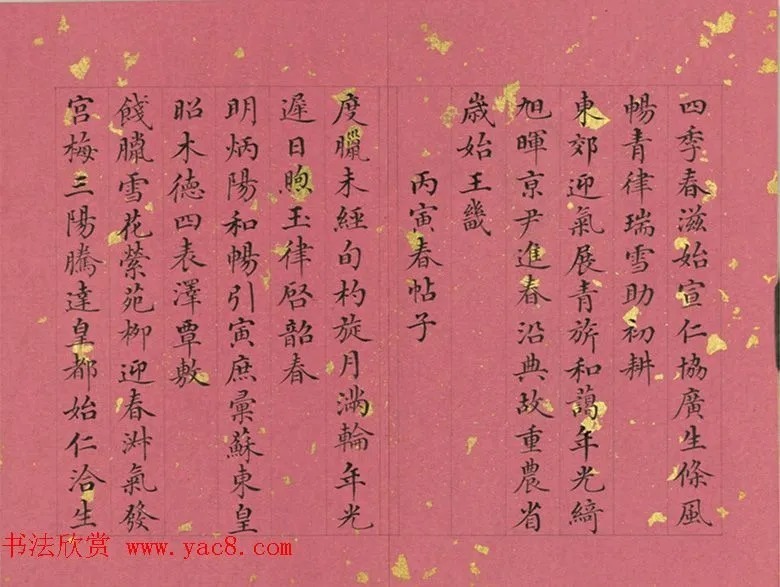 四季春滋始宣仁協廣生條風
暢青律瑞雪助初耕
東郊迎氣展青旂和藹年光綺
旭暉京尹進春沿典故重農省
歲始王畿
丙寅春帖子
度臘未經旬杓旋月滿輪年光
遲日煦玉律啓韶春
明炳陽和暢引寅庶彙蘇東皇
昭木德四表澤覃敷
餞臘雪花縈苑柳迎春淑氣發
宮梅三陽騰達皇都始仁洽生
书法欣赏 www.yac8.com